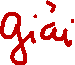 giải